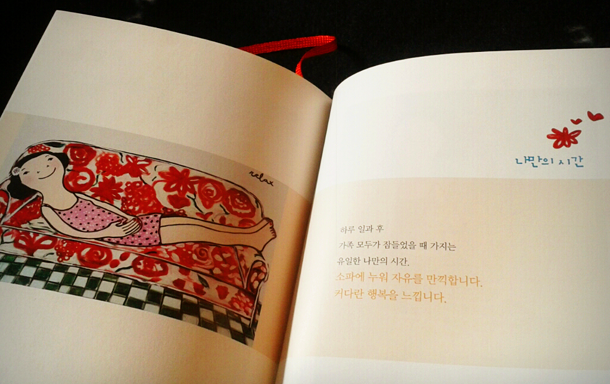 relax
나만의 시간
하루 일과 후
가족 모두가 잠들었을 때 가지는
유일한 나만의 시간.
소파에 누워 자유를 만끽합니다.
커다란 행복을 느낍니다.